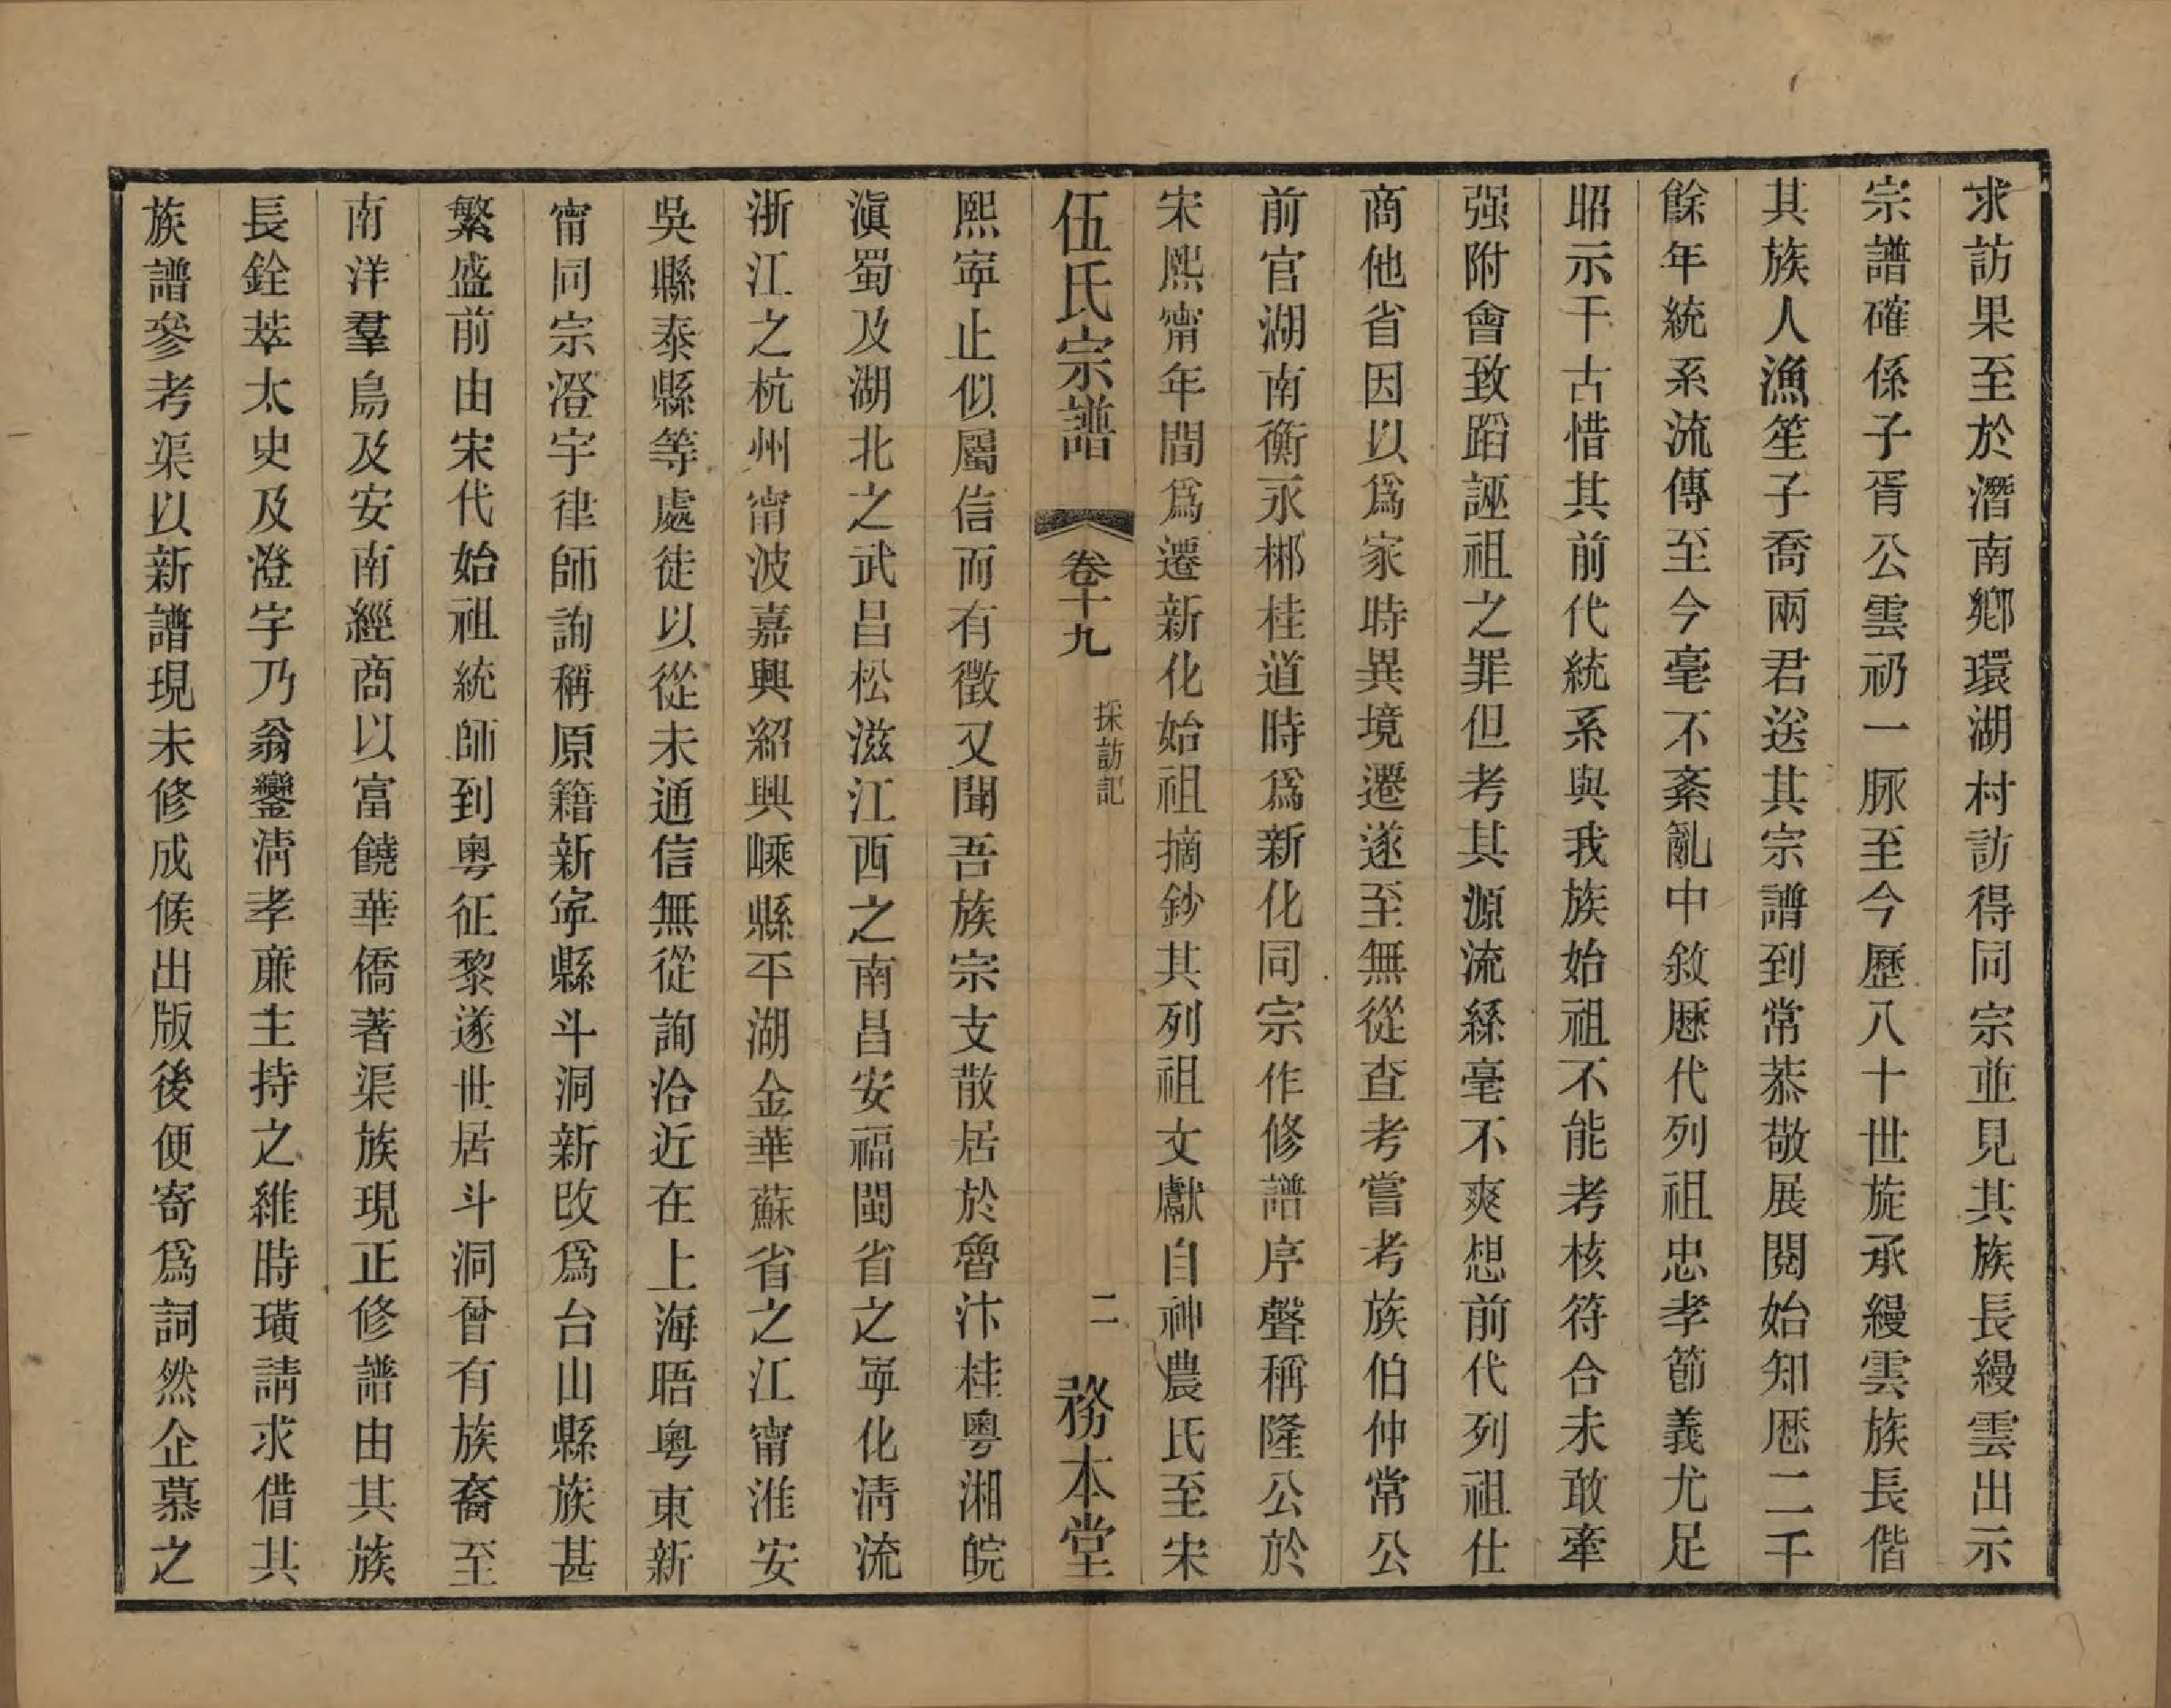 求訪果至於潛南鄉環湖村訪得同宗並見其族長縵雲出示
宗譜確係子胥公雲礽一脈至今歷八十世旋承縵雲族長偕
其族人漁笙子喬兩君送其宗譜到常恭敬展閱始知歷二千
餘年統系流傳至今毫不紊亂中敘歷代列祖忠孝節義尤足
昭示千古惜其前代統系與我族始祖不能考核符合未敢牽
强附會致蹈誣祖之罪但考其源流絲毫不爽想前代列祖仕
商他省因以爲家時異境遷遂至無從查考嘗考族伯仲常公
前官湖南衡永郴桂道時爲新化同宗作修譜序聲稱隆公於
宋熙甯年間爲遷新化始祖摘鈔其列祖文獻自神農氏至宋
伍氏宗譜 卷十九 採訪記 二 務本堂
熙寧止似屬信而有徵又聞吾族宗支散居於魯汴桂粵湘皖
滇蜀及湖北之武昌松滋江西之南昌安福閩省之寧化淸流
浙江之杭州甯波嘉興紹興嵊縣平湖金華蘇省之江甯淮安
吳縣泰縣等處徒以從未通信無從詢洽近在上海晤粵東新
甯同宗澄宇律師詢稱原籍新寧縣斗洞新改爲台山縣族甚
繁盛前由宋代始祖統師到粵征黎遂世居斗洞曾有族裔至
南洋羣島及安南經商以富饒華僑著渠族現正修譜由其族
長銓萃太史及澄宇乃翁鑾淸孝廉主持之維時璜請求借其
族譜參考渠以新譜現未修成候出版後便寄爲詞然企慕之